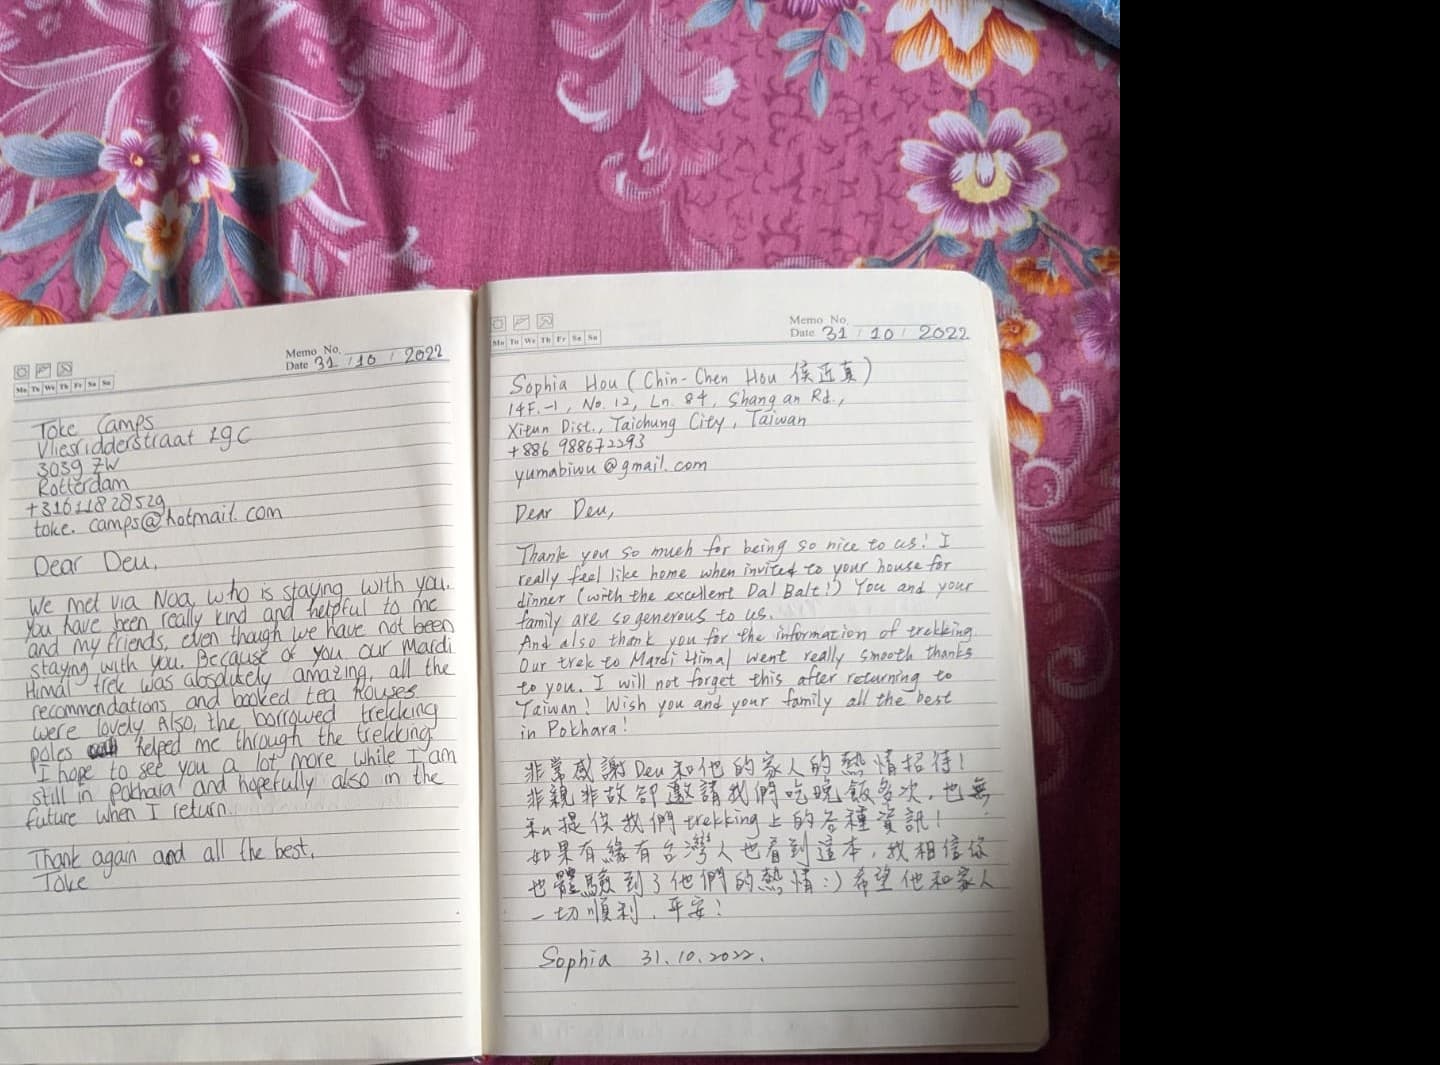 Memo No.
Date 31 / 10 / 2022
Mo Tu We Th Fr Sa Su
Toke Camps
Vliesridderstraat 19C
3039 ZW
Rotterdam
+31611828529
toke.camps@hotmail.com
Dear Deu,
We met via Noa, who is staying with you.
You have been really kind and helpful to me
and my friends, even though we have not been
staying with you. Because of you our Mardi
Himal trek was absolutely amazing, all the
recommendations, and booked tea houses
were lovely. Also, the borrowed trekking
poles helped me through the trekking.
I hope to see you a lot more while I am
still in Pokhara and hopefully also in the
future when I return.
Thank again and all the best,
Toke
Memo No.
Date 31 / 10 / 2022
Mo Tu We Th Fr Sa Su
Sophia Hou (Chin-Chen Hou 侯近真)
14F.-1, No. 12, Ln. 84, Shang an Rd.,
Xitun Dist., Taichung City, Taiwan
+886 988672293
yumabiwu@gmail.com
Dear Deu,
Thank you so much for being so nice to us! I
really feel like home when invited to your house for
dinner (with the excellent Dal Balt!) You and your
family are so generous to us.
And also thank you for the information of trekking.
Our trek to Mardi Himal went really smooth thanks
to you. I will not forget this after returning to
Taiwan! Wish you and your family all the best
in Pokhara!
非常感謝Deu和他的家人的熱情招待!
非親非故卻邀請我們吃晚飯多次,也無
私提供我們trekking上的各種資訊!
如果有緣有台灣人也看到這本,我相信你
也體驗到了他們的熱情:)希望他和家人
一切順利、平安!
Sophia 31.10.2022.